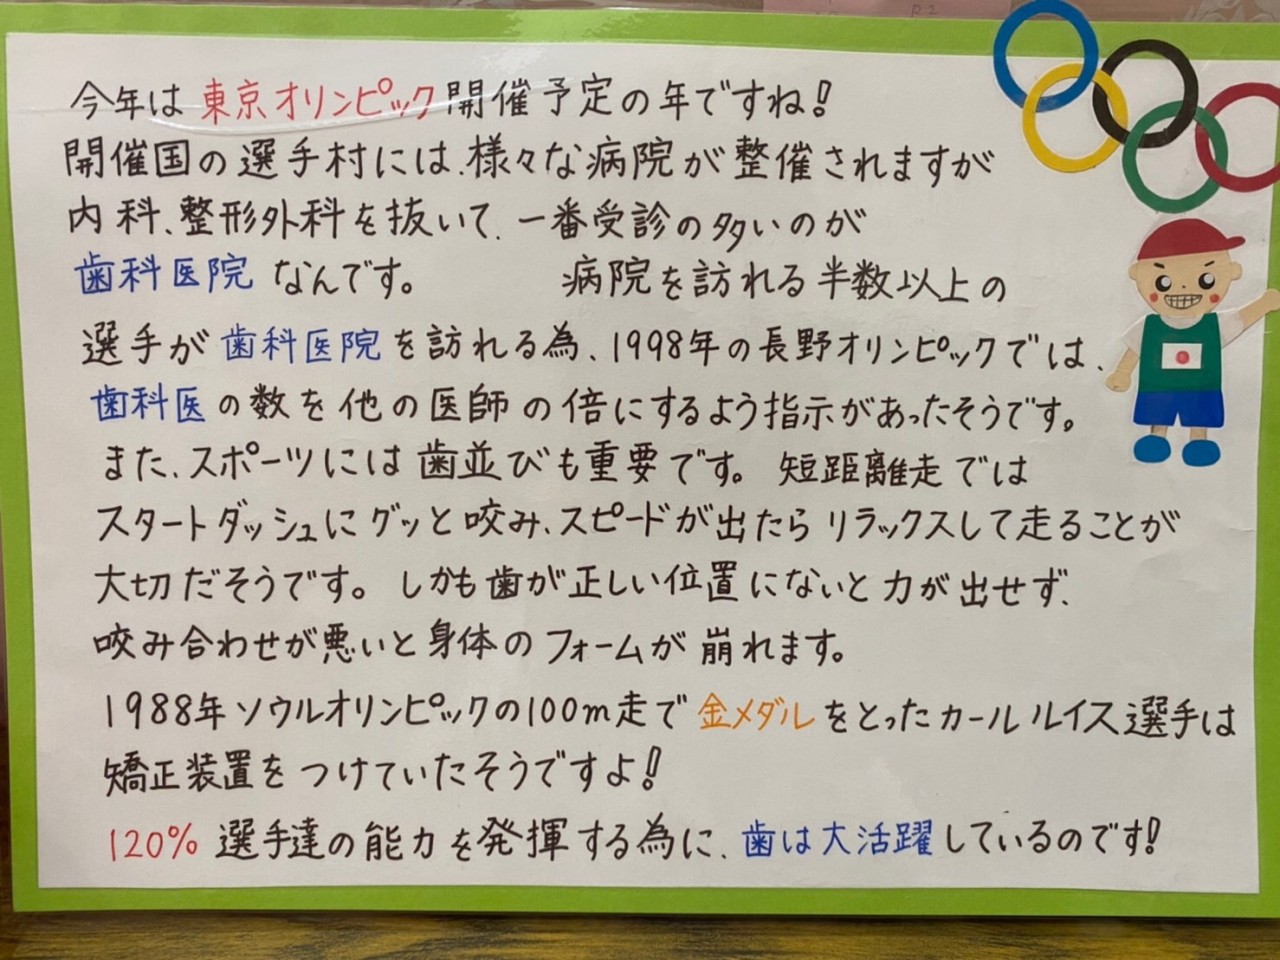 今年は東京オリンピック開催予定の年ですね!
開催国の選手村には、様々な病院が整催されますが
内科、整形外科を抜いて、一番受診の多いのが
歯科医院なんです。 病院を訪れる半数以上の
選手が歯科医院を訪れる為、1998年の長野オリンピックでは、
歯科医の数を他の医師の倍にするよう指示があったそうです。
また、スポーツには歯並びも重要です。短距離走では
スタートダッシュにグッと咬み、スピードが出たらリラックスして走ることが
大切だそうです。しかも歯が正しい位置にないと力が出せず、
咬み合わせが悪いと身体のフォームが崩れます。
1988年ソウルオリンピックの100m走で金メダルをとったカールルイス選手は
矯正装置をつけていたそうですよ!
120% 選手達の能力を発揮する為に、歯は大活躍しているのです!